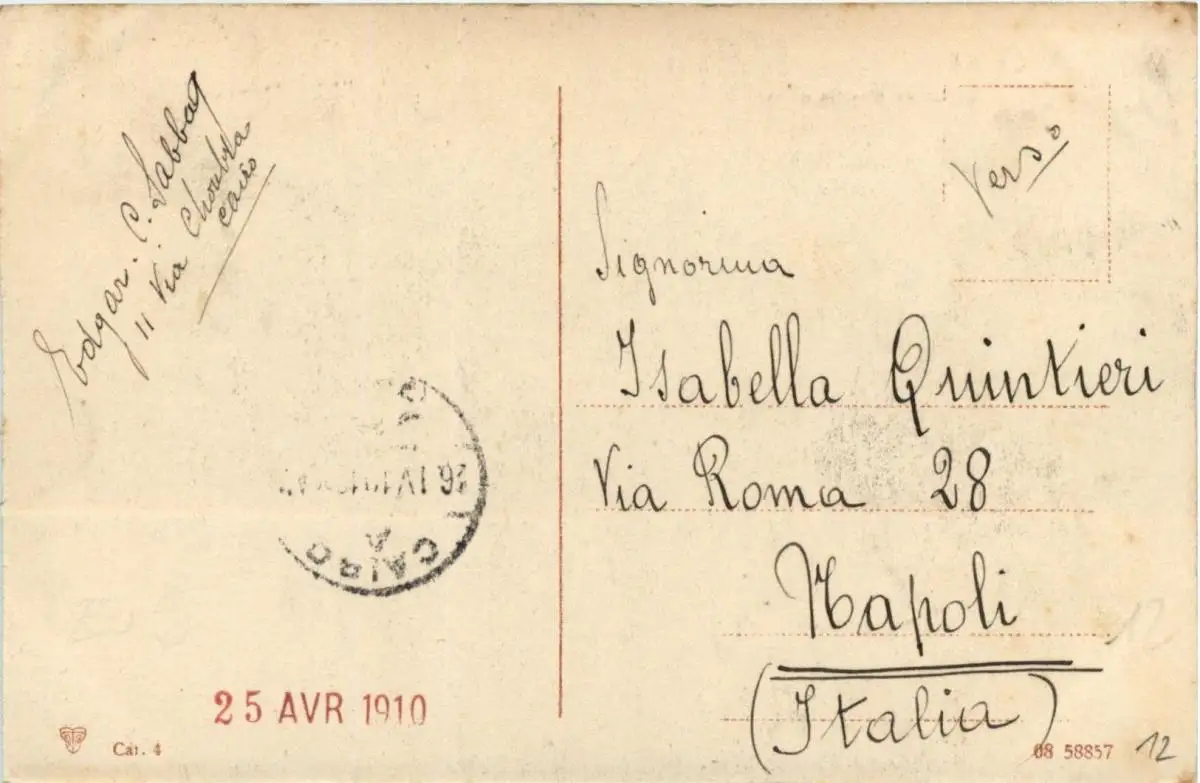 Edgar. C. Sabbag
11 Via Choubra
Cairo
Verso
Signorina
Isabella Quintieri
Via Roma 28
Napoli
(Italia)
CAIRO
A
25 AVR 1910
Cat. 4
08 58857
12